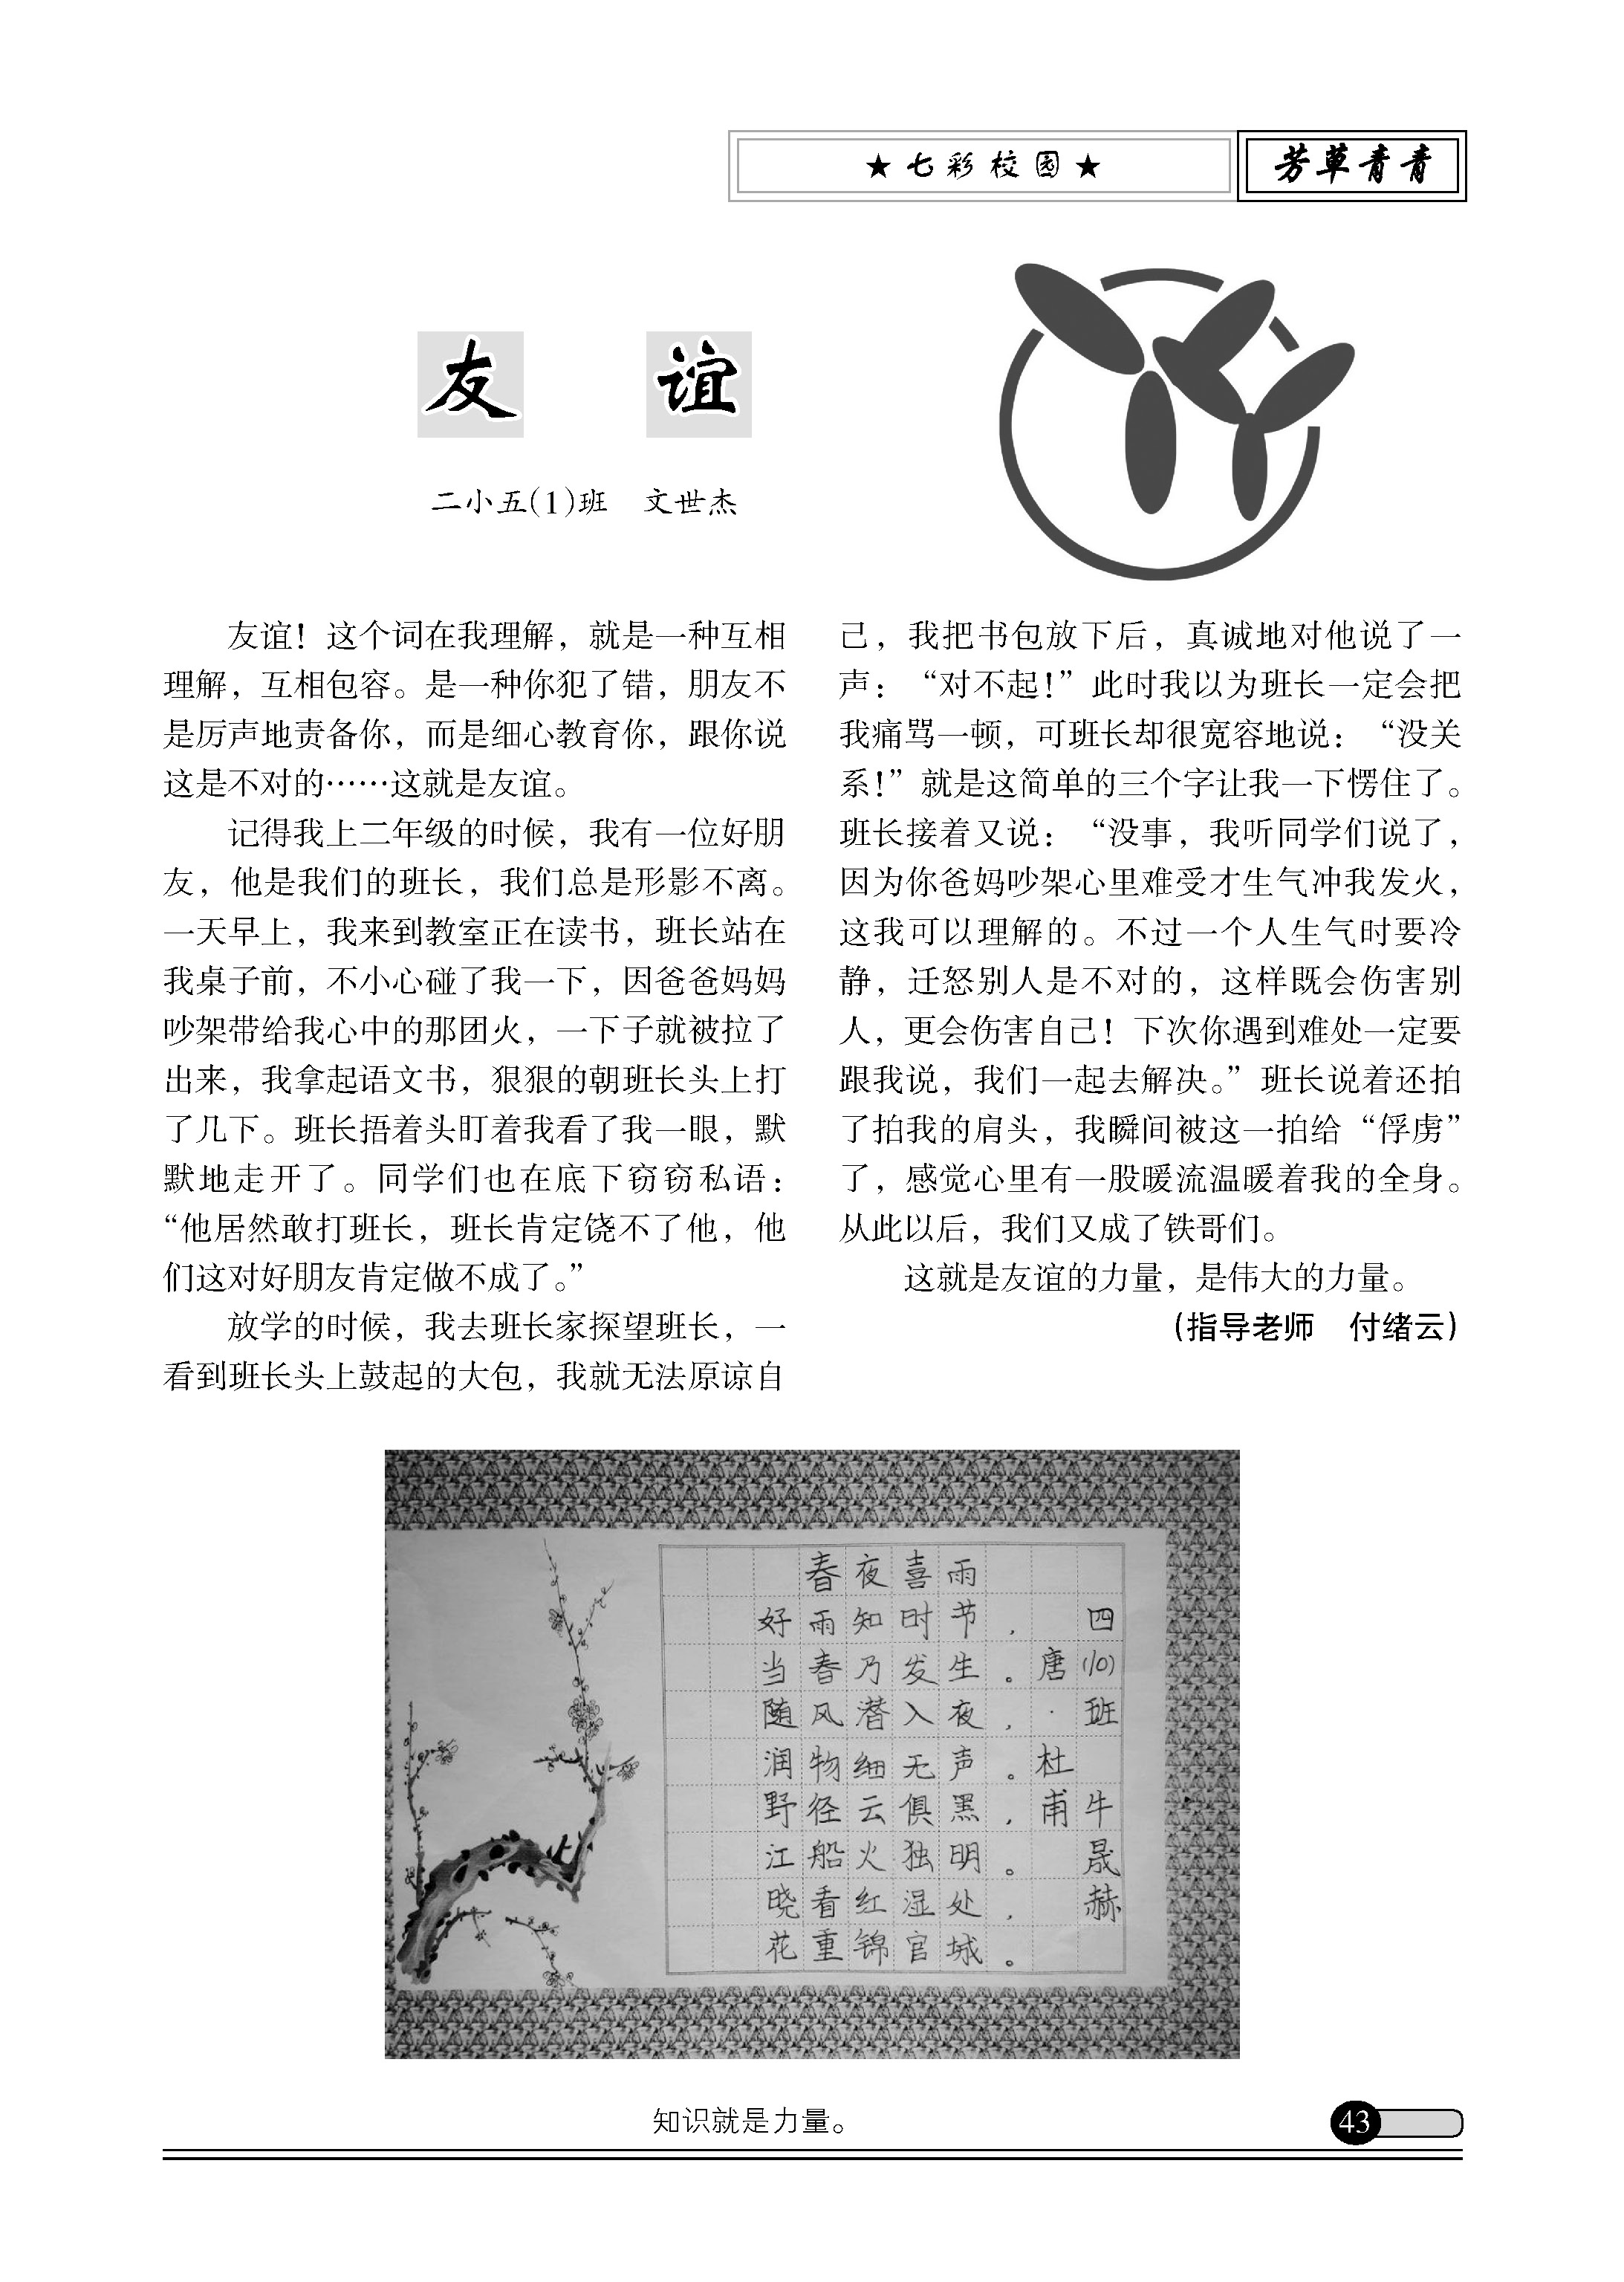 ★七彩校园★
芳草青青
友谊
二小五(1)班　文世杰
友谊！这个词在我理解，就是一种互相
理解，互相包容。是一种你犯了错，朋友不
是厉声地责备你，而是细心教育你，跟你说
这是不对的……这就是友谊。
记得我上二年级的时候，我有一位好朋
友，他是我们的班长，我们总是形影不离。
一天早上，我来到教室正在读书，班长站在
我桌子前，不小心碰了我一下，因爸爸妈妈
吵架带给我心中的那团火，一下子就被拉了
出来，我拿起语文书，狠狠的朝班长头上打
了几下。班长捂着头盯着我看了我一眼，默
默地走开了。同学们也在底下窃窃私语：
“他居然敢打班长，班长肯定饶不了他，他
们这对好朋友肯定做不成了。”
放学的时候，我去班长家探望班长，一
看到班长头上鼓起的大包，我就无法原谅自
己，我把书包放下后，真诚地对他说了一
声：“对不起！”此时我以为班长一定会把
我痛骂一顿，可班长却很宽容地说：“没关
系！”就是这简单的三个字让我一下愣住了。
班长接着又说：“没事，我听同学们说了，
因为你爸妈吵架心里难受才生气冲我发火，
这我可以理解的。不过一个人生气时要冷
静，迁怒别人是不对的，这样既会伤害别
人，更会伤害自己！下次你遇到难处一定要
跟我说，我们一起去解决。”班长说着还拍
了拍我的肩头，我瞬间被这一拍给“俘虏”
了，感觉心里有一股暖流温暖着我的全身。
从此以后，我们又成了铁哥们。
这就是友谊的力量，是伟大的力量。
(指导老师　付绪云)
春夜喜雨
好雨知时节，
当春乃发生。
随风潜入夜，
润物细无声。
野径云俱黑，
江船火独明。
晓看红湿处，
花重锦官城。
唐·杜甫
四(10)班 牛晟赫
知识就是力量。
43